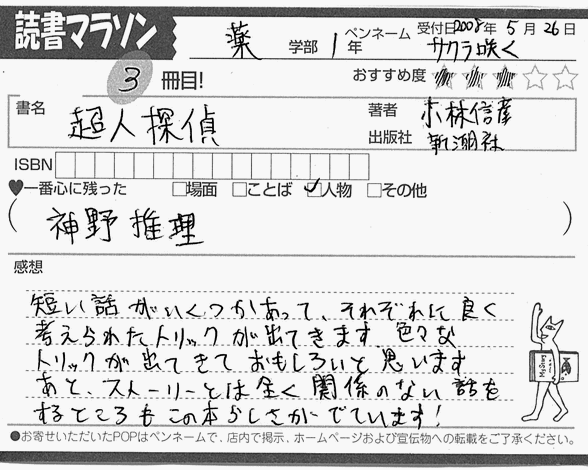 読書マラソン
薬 学部 1年
ペンネーム サクラ咲く
受付日2008年5月26日
3 冊目!
おすすめ度 ★★★☆☆
書名 超人探偵
著者 小林信彦
出版社 新潮社
ISBN
♥一番心に残った □場面 □ことば ☑人物 □その他
(神野推理)
感想
短い話がいくつかあって、それぞれに良く
考えられたトリックが出てきます 色々な
トリックが出てきておもしろいと思います
あと、ストーリーとは全く関係のない話を
するところもこの本らしさがでています!
●お寄せいただいたPOPはペンネームで、店内で掲示、ホームページおよび宣伝物への転載をご了承ください。